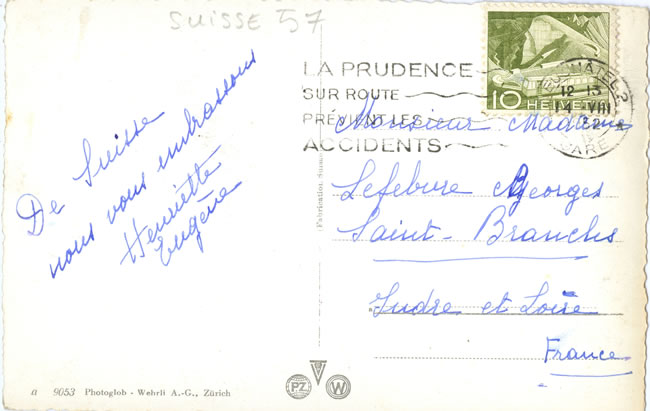 SUISSE 57
De Suisse
nous vous embrassons
Henriette
Eugène
LA PRUDENCE
SUR ROUTE
PRÉVIENT LES
ACCIDENTS
10 HELVETIA
NEUCHÂTEL 2
12-13
14. VIII
GARE
Monsieur Madame
Lefebvre Georges
Saint-Branchs
Indre et Loire
France
Fabrication Suisse
a 9053 Photoglob - Wehrli A.-G., Zürich
PZ W